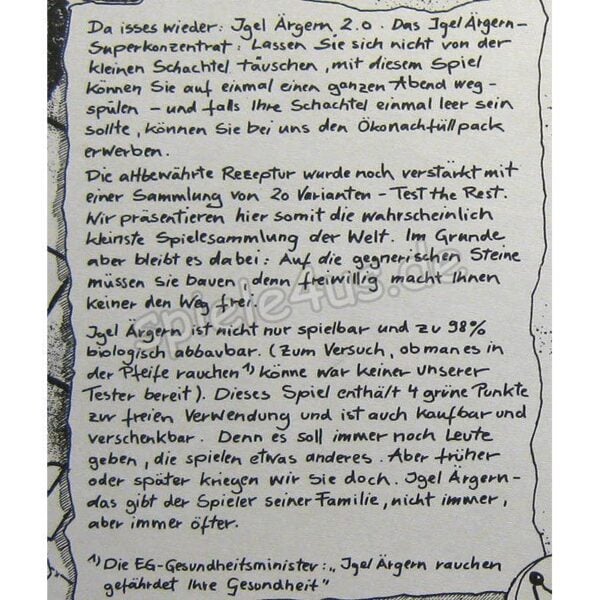 Da isses wieder: Igel Ärgern 2.0. Das Igel Ärgern-
Superkonzentrat: Lassen Sie sich nicht von der
kleinen Schachtel täuschen, mit diesem Spiel
können Sie auf einmal einen ganzen Abend weg-
spülen - und falls Ihre Schachtel einmal leer sein
sollte, können Sie bei uns den Ökonachfüllpack
erwerben.
Die altbewährte Rezeptur wurde noch verstärkt mit
einer Sammlung von 20 Varianten - Test the Rest.
Wir präsentieren hier somit die wahrscheinlich
kleinste Spielesammlung der Welt. Im Grunde
aber bleibt es dabei: Auf die gegnerischen Steine
müssen Sie bauen, denn freiwillig macht Ihnen
keiner den Weg frei.
spiele4us.de
Igel Ärgern ist nicht nur spielbar und zu 98%
biologisch abbaubar. (Zum Versuch, ob man es in
der Pfeife rauchen ¹) könne war keiner unserer
Tester bereit). Dieses Spiel enthält 4 grüne Punkte
zur freien Verwendung und ist auch kaufbar und
verschenkbar. Denn es soll immer noch Leute
geben, die spielen etwas anderes. Aber früher
oder später kriegen wir Sie doch. Igel Ärgern-
das gibt der Spieler seiner Familie, nicht immer,
aber immer öfter.
¹) Die EG-Gesundheitsminister: „Igel Ärgern rauchen
gefährdet Ihre Gesundheit"